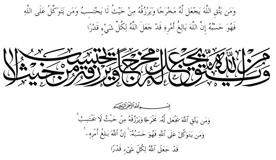 وَمَن يَتَّقِ اللَّهَ يَجْعَل لَّهُ مَخْرَجًا وَيَرْزُقْهُ مِنْ حَيْثُ لَا يَحْتَسِبُ وَمَن يَتَوَكَّلْ عَلَى اللَّهِ
فَهُوَ حَسْبُهُ إِنَّ اللَّهَ بَالِغُ أَمْرِهِ قَدْ جَعَلَ اللَّهُ لِكُلِّ شَيْءٍ قَدْرًا
ومن يتق الله يجعل له مخرجا ويرزقه من حيث لا يحتسب
بسم الله الرحمن الرحيم
وَمَن يَتَّقِ اللَّهَ يَجْعَل لَّهُ مَخْرَجًا وَيَرْزُقْهُ مِنْ حَيْثُ لَا يَحْتَسِبُ
وَمَن يَتَوَكَّلْ عَلَى اللَّهِ فَهُوَ حَسْبُهُ إِنَّ اللَّهَ بَالِغُ أَمْرِهِ
قَدْ جَعَلَ اللَّهُ لِكُلِّ شَيْءٍ قَدْرًا